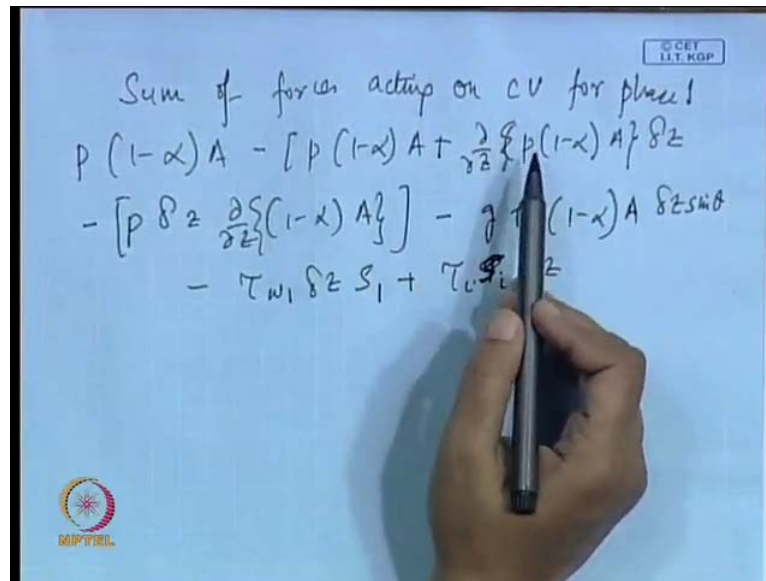 © CET
I.I.T. KGP
Sum of forces acting on CV for phase 1
p (1-α) A - [p (1-α) A + ∂/∂z {p(1-α) A} δz
- [p δz ∂/∂z {(1-α) A}] - g (1-α) A δz sinθ
- τw1 δz S1 + τi Si z
NPTEL